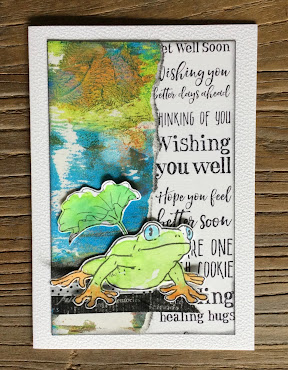 et Well Soon
Wishing you
better days ahead
HINKING OF YOU
Wishing
you well
Hope you feel
better soon
RE ONE
H COOKIE
ing
healing hugs